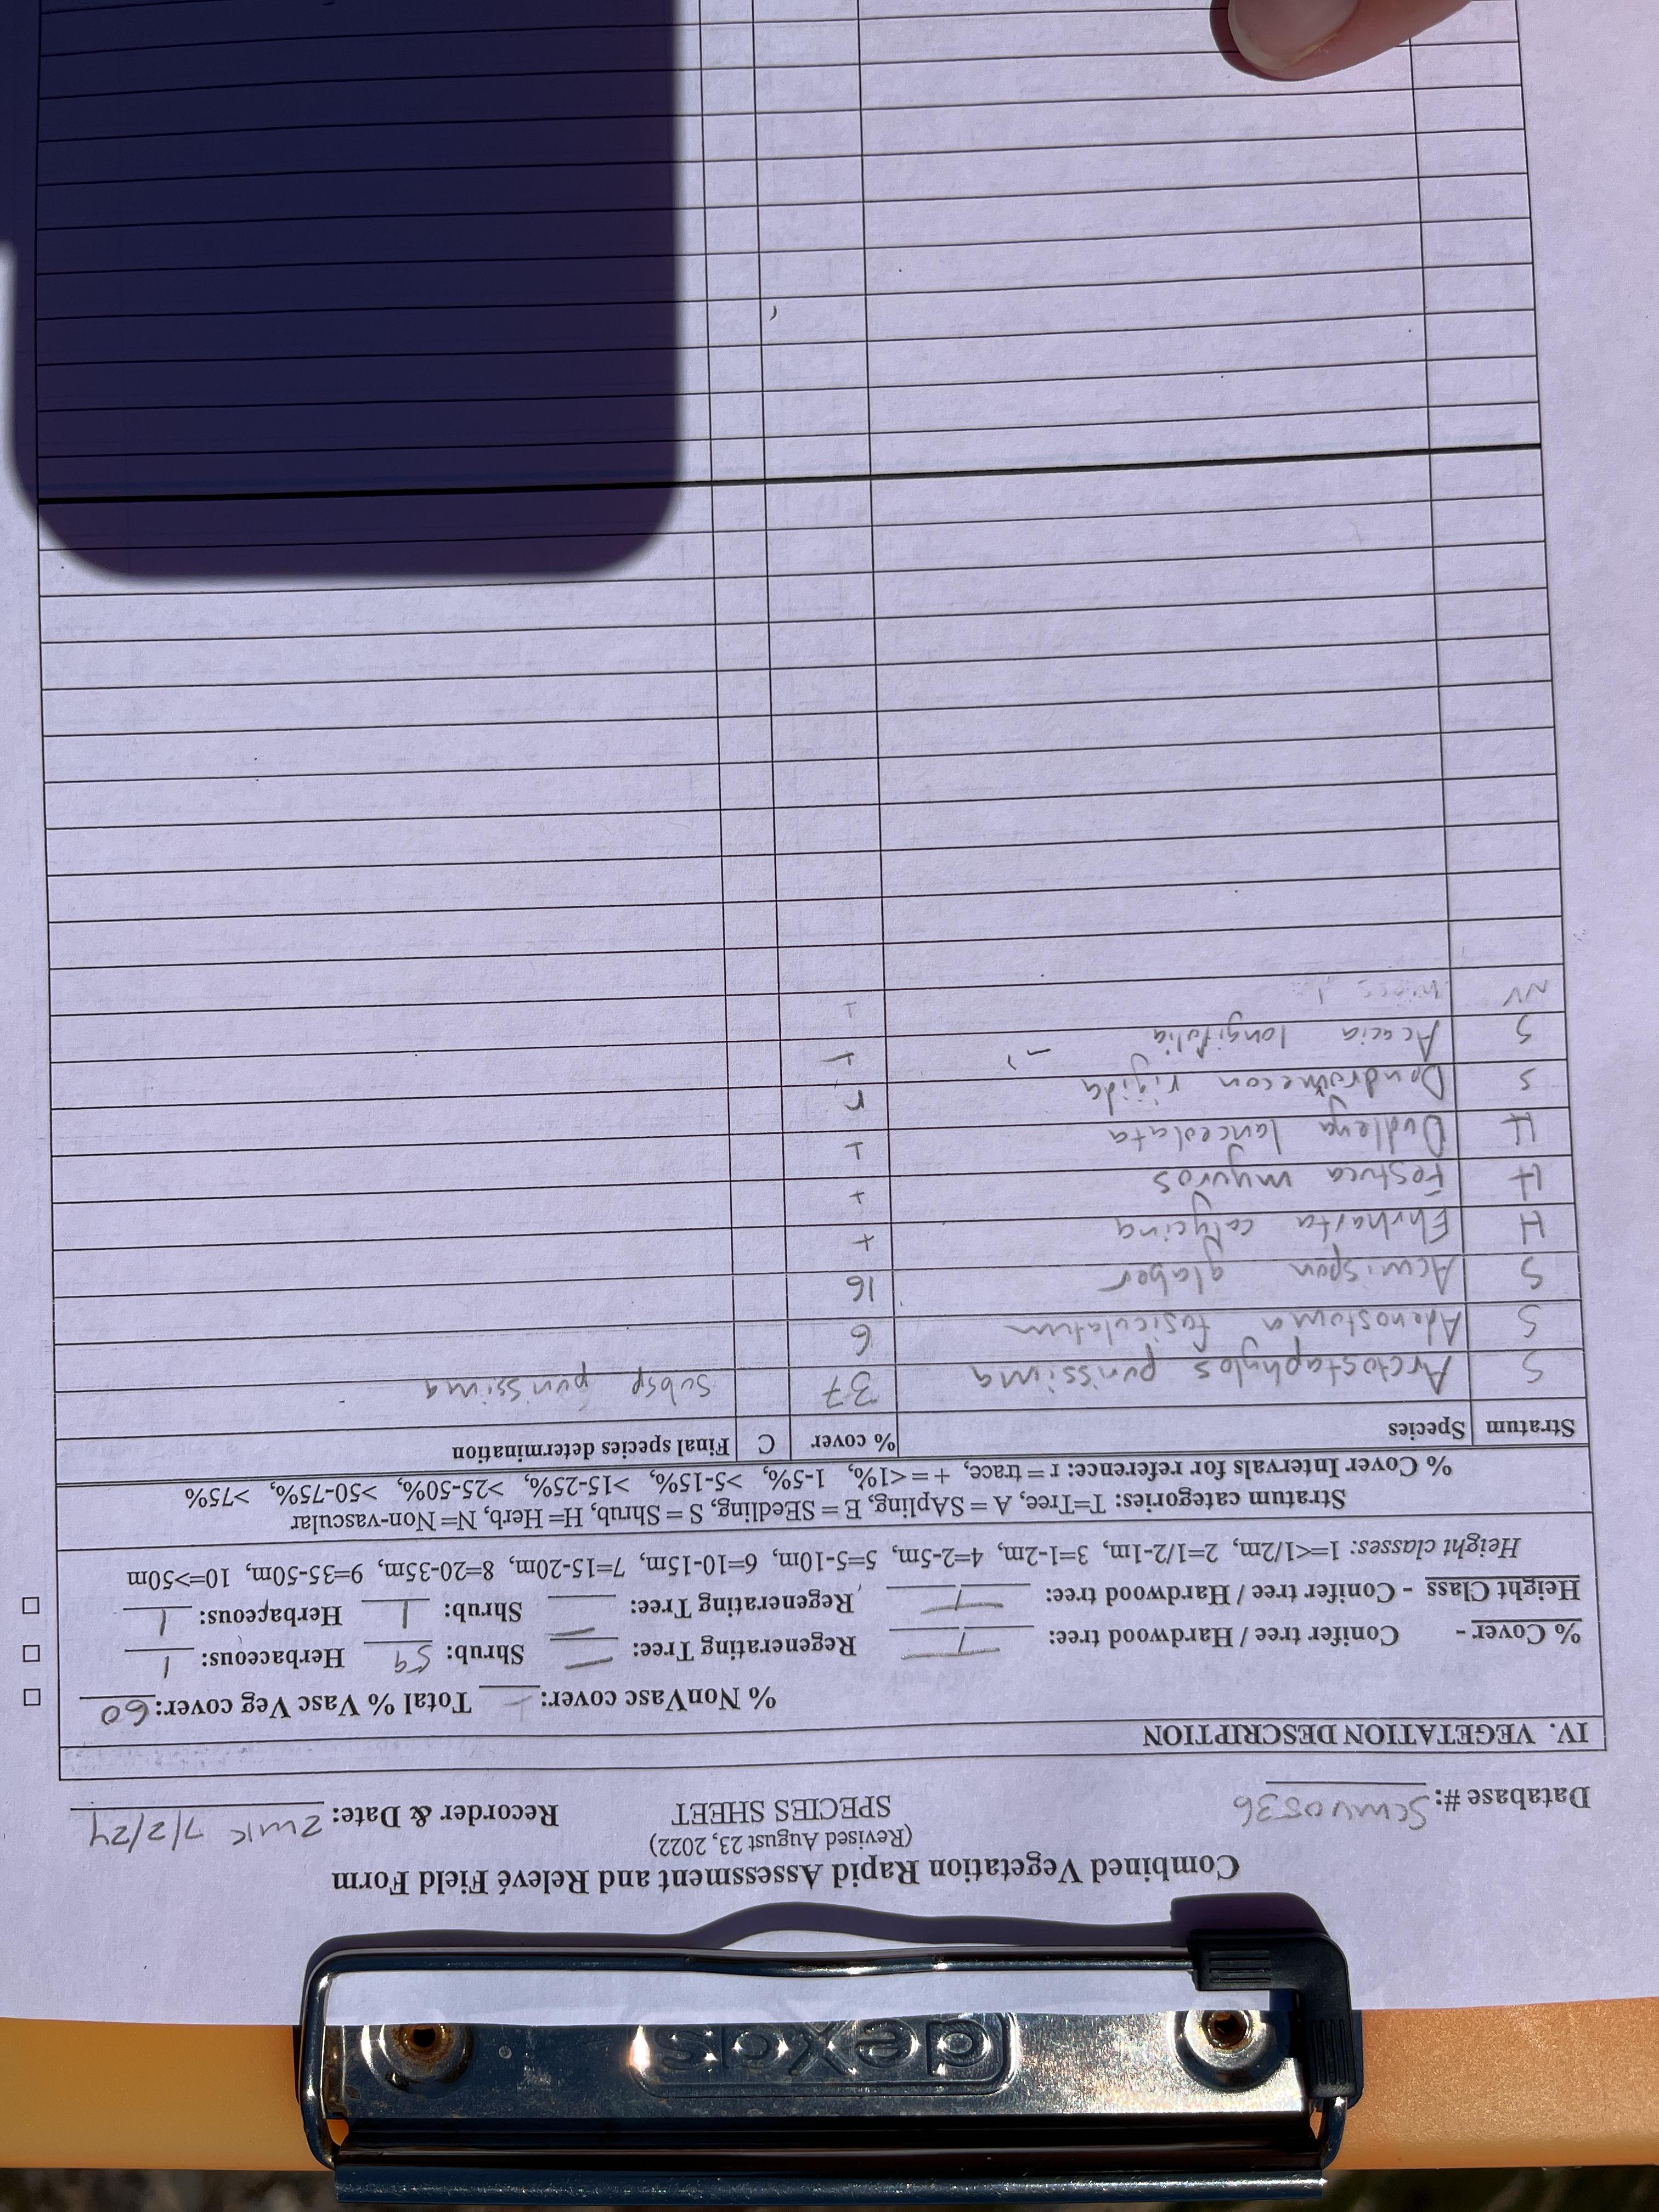 Combined Vegetation Rapid Assessment and Relevé Field Form
(Revised August 23, 2022)
Database #: SCMV0536 SPECIES SHEET Recorder & Date: ZWK 7/2/24
IV. VEGETATION DESCRIPTION
% NonVasc cover: Total % Vasc Veg cover: 60
% Cover - Conifer tree / Hardwood tree: — / — Regenerating Tree: — Shrub: 59 Herbaceous: 1
Height Class - Conifer tree / Hardwood tree: — / — Regenerating Tree: — Shrub: 1 Herbaceous: 1
Height classes: 1=<1/2m, 2=1/2-1m, 3=1-2m, 4=2-5m, 5=5-10m, 6=10-15m, 7=15-20m, 8=20-35m, 9=35-50m, 10=>50m
Stratum categories: T=Tree, A = SApling, E = SEedling, S = Shrub, H= Herb, N= Non-vascular
% Cover Intervals for reference: r = trace, + = <1%, 1-5%, >5-15%, >15-25%, >25-50%, >50-75%, >75%
Stratum Species % cover C Final species determination
S Arctostaphylos purissima 37 subsp purissima
S Adenostoma fasiculatum 6
S Acmispon glaber 16
H Ehrharta calycina +
H Festuca myuros +
H Dudleya lanceolata +
S Dendromecon rigida r
S Acacia longifolia +
NV +
dexas